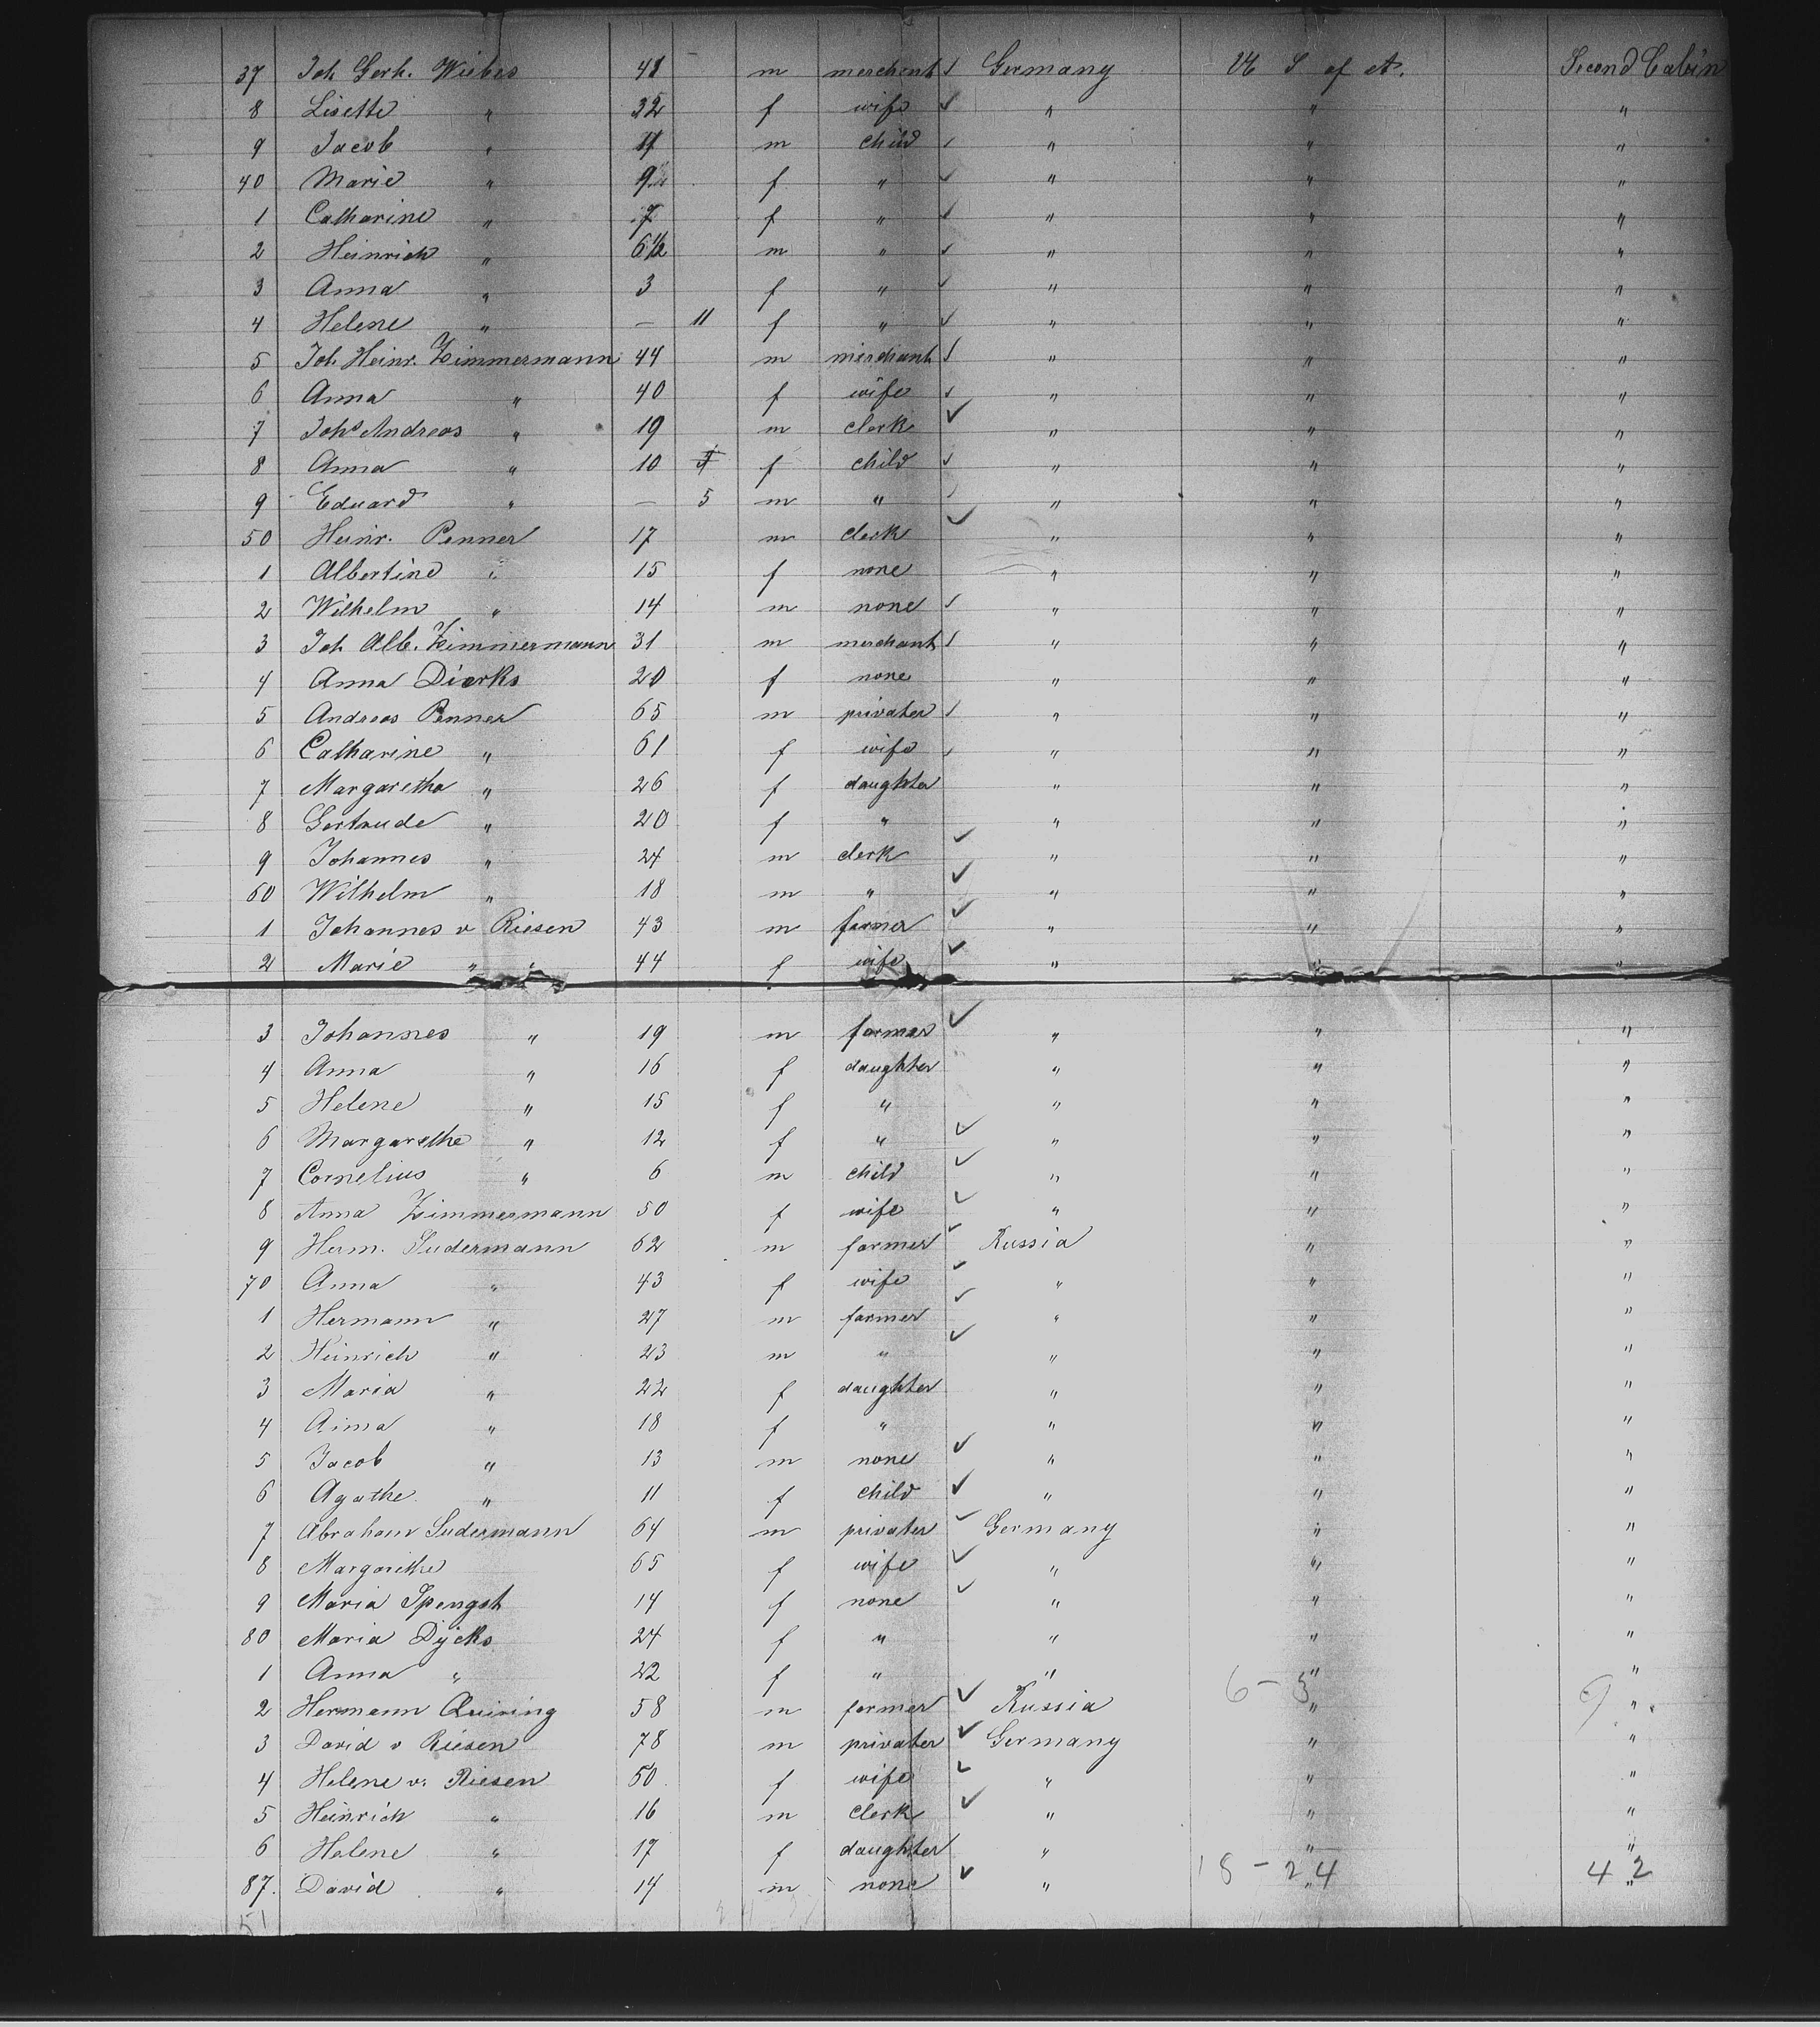 37 Joh Gerh. Wiebes 41 m merchant Germany U S of A. Second Cabin
8 Lisette " 32 f wife " " "
9 Jacob " 11 m child " " "
40 Marie " 9 f " " " "
1 Catharine " 7 f " " " "
2 Heinrich " 6½ m " " " "
3 Anna " 3 f " " " "
4 Helene " — 11 f " " " "
5 Joh. Heinr. Zimmermann 44 m merchant " " "
6 Anna " 40 f wife " " "
7 Johs Andreas " 19 m clerk " " "
8 Anna " 10 f child " " "
9 Eduard " — 5 m " " " "
50 Heinr. Penner 17 m clerk " " "
1 Albertine " 15 f none " " "
2 Wilhelm " 14 m none " " "
3 Joh Alb. Zimmermann 31 m merchant " " "
4 Anna Dierks 20 f none " " "
5 Andreas Penner 65 m privater " " "
6 Catharine " 61 f wife " " "
7 Margaretha " 26 f daughter " " "
8 Gertrude " 20 f " " " "
9 Johannes " 24 m clerk " " "
60 Wilhelm " 18 m " " " "
1 Johannes v Riesen 43 m farmer " " "
2 Marie " " 44 f wife " " "
3 Johannes " 19 m farmer " " "
4 Anna " 16 f daughter " " "
5 Helene " 15 f " " " "
6 Margarethe " 12 f " " " "
7 Cornelius " 6 m child " " "
8 Anna Zimmermann 50 f wife " " "
9 Herm. Sudermann 62 m farmer Russia " "
70 Anna " 43 f wife " " "
1 Hermann " 27 m farmer " " "
2 Heinrich " 23 m " " " "
3 Maria " 22 f daughter " " "
4 Anna " 18 f " " " "
5 Jacob " 13 m none " " "
6 Agathe " 11 f child " " "
7 Abraham Sudermann 64 m privater Germany " "
8 Margarethe 65 f wife " " "
9 Maria Spengst 14 f none " " "
80 Maria Dÿcks 24 f " " " "
1 Anna " 22 f " " " "
2 Hermann Quiring 58 m farmer Russia 6 - 3 " 9 "
3 David v Riesen 78 m privater Germany " "
4 Helene v. Riesen 50 f wife " " "
5 Heinrich " 16 m clerk " " "
6 Helene " 17 f daughter " " "
87. David " 14 m none " 18 - 24 " 42 "
51